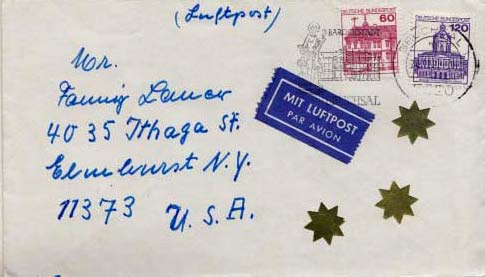 (Luftpost)
BAROCKSTADT
DEUTSCHE BUNDESPOST
60
DEUTSCHE BUNDESPOST
120
BRUCHSAL
7520
BRUCHSAL
MIT LUFTPOST
PAR AVION
Mr.
Fanny Lauer
4035 Ithaga St.
Elmhurst N.Y.
11373 U.S.A.